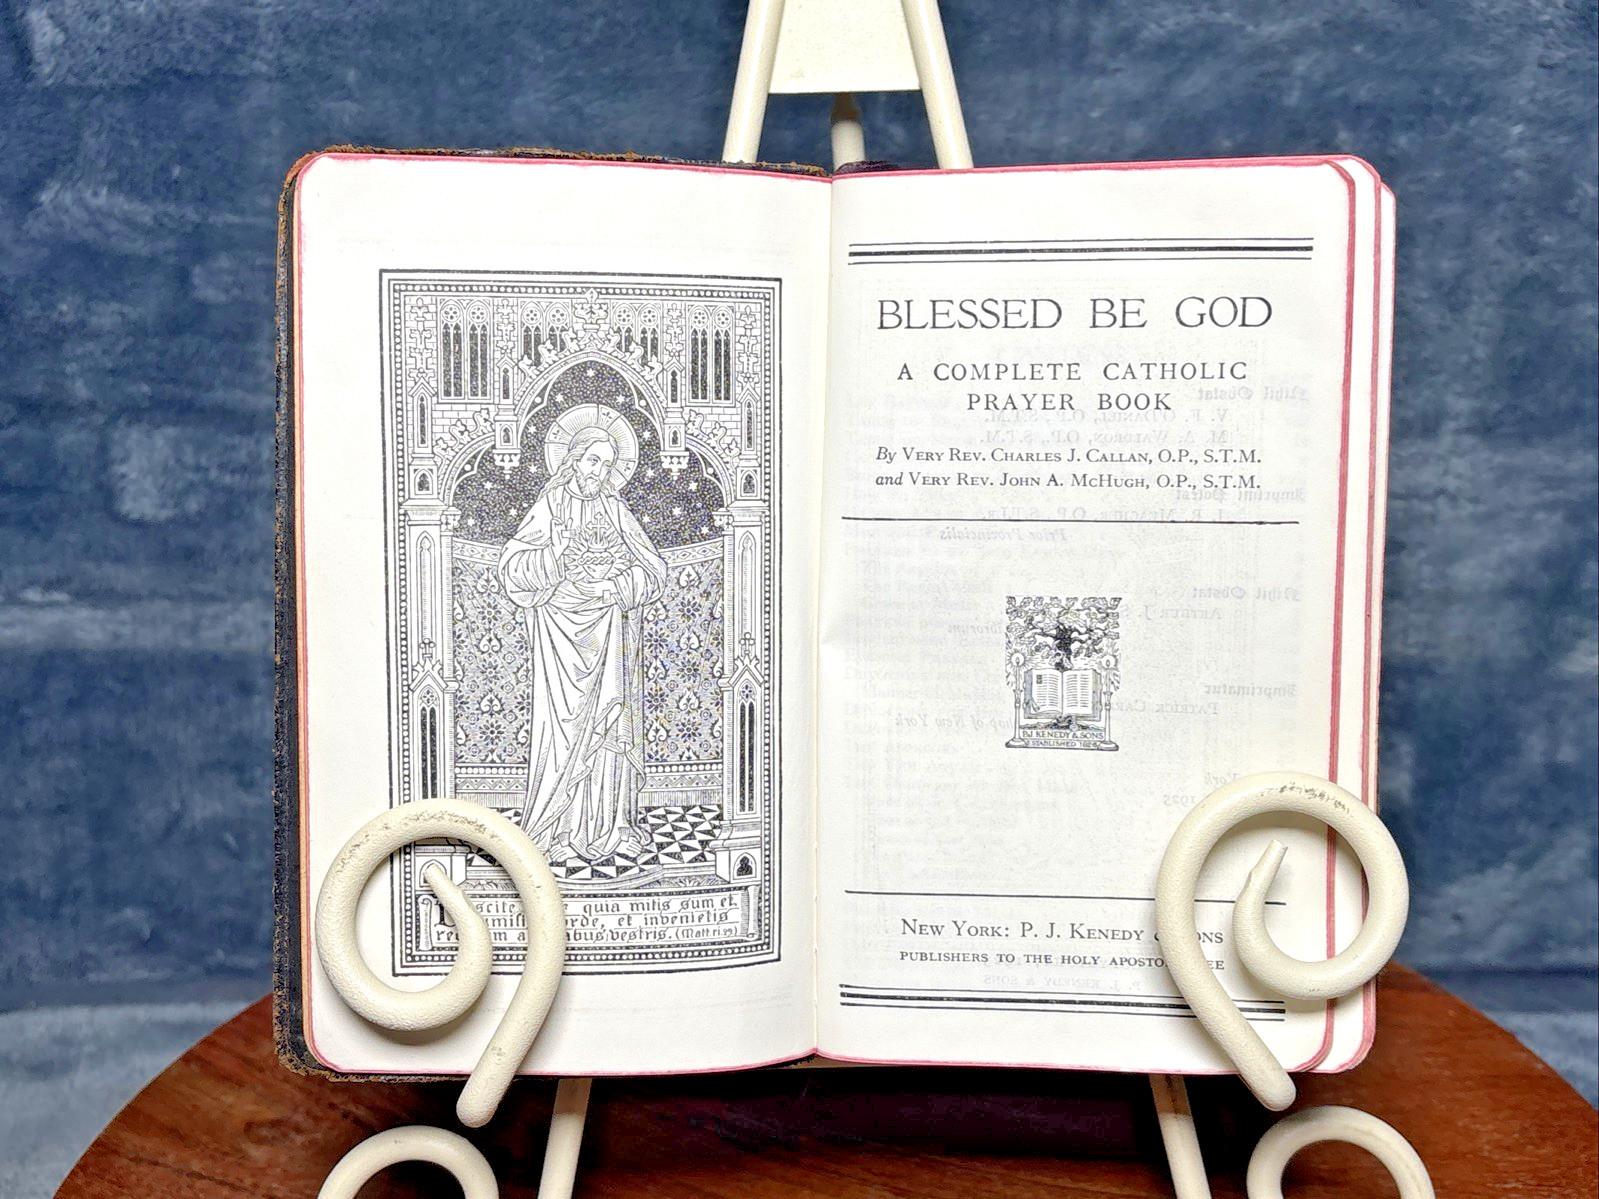 quia mitis sum et
et invenietis
vestris. (Matt. xi. 29)
BLESSED BE GOD
A COMPLETE CATHOLIC
PRAYER BOOK
By VERY REV. CHARLES J. CALLAN, O.P., S.T.M.
and VERY REV. JOHN A. MCHUGH, O.P., S.T.M.
P.J. KENEDY & SONS
ESTABLISHED 1826
NEW YORK: P. J. KENEDY
PUBLISHERS TO THE HOLY